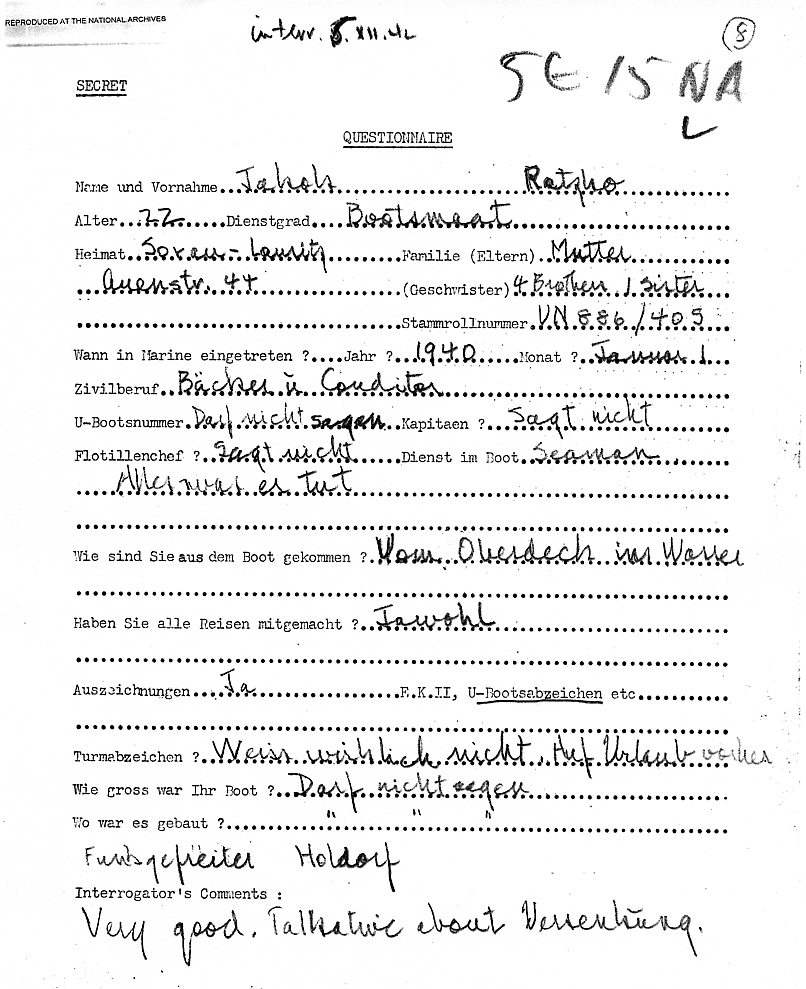 REPRODUCED AT THE NATIONAL ARCHIVES
interr. 5.XII.42
8
SECRET
SE 15 NA
L
QUESTIONNAIRE
Name und Vornahme...Jakob......Ratzko......
Alter...22......Dienstgrad....Bootsmaat......
Heimat..Soreau-Lausitz......Familie (Eltern)..Mutter......
...Auenstr. 44......(Geschwister) 4 Brothers 1 Sister...
......Stammrollnummer. UN 886/40 S...
Wann in Marine eingetreten ?....Jahr ?...1940......Monat ?..Januar 1...
Zivilberuf..Bäcker u Conditor......
U-Bootsnummer. Darf nicht sagen..Kapitaen ?...Sagt nicht......
Flotillenchef ?..Sagt nicht......Dienst im Boot..Seaman......
.....Alles was es tut......
Wie sind Sie aus dem Boot gekommen ?. Vom Oberdeck ins Wasser
Haben Sie alle Reisen mitgemacht ?..Jawohl......
Auszeichnungen....Ja......E.K.II, U-Bootsabzeichen etc......
Turmabzeichen ?..Weiss wirklich nicht. Auf Urlaub vorher
Wie gross war Ihr Boot ?..Darf nicht sagen......
Wo war es gebaut ?...... " " "
Funkgefreiter Holdorf
Interrogator's Comments :
Very good. Talkative about Versenkung.